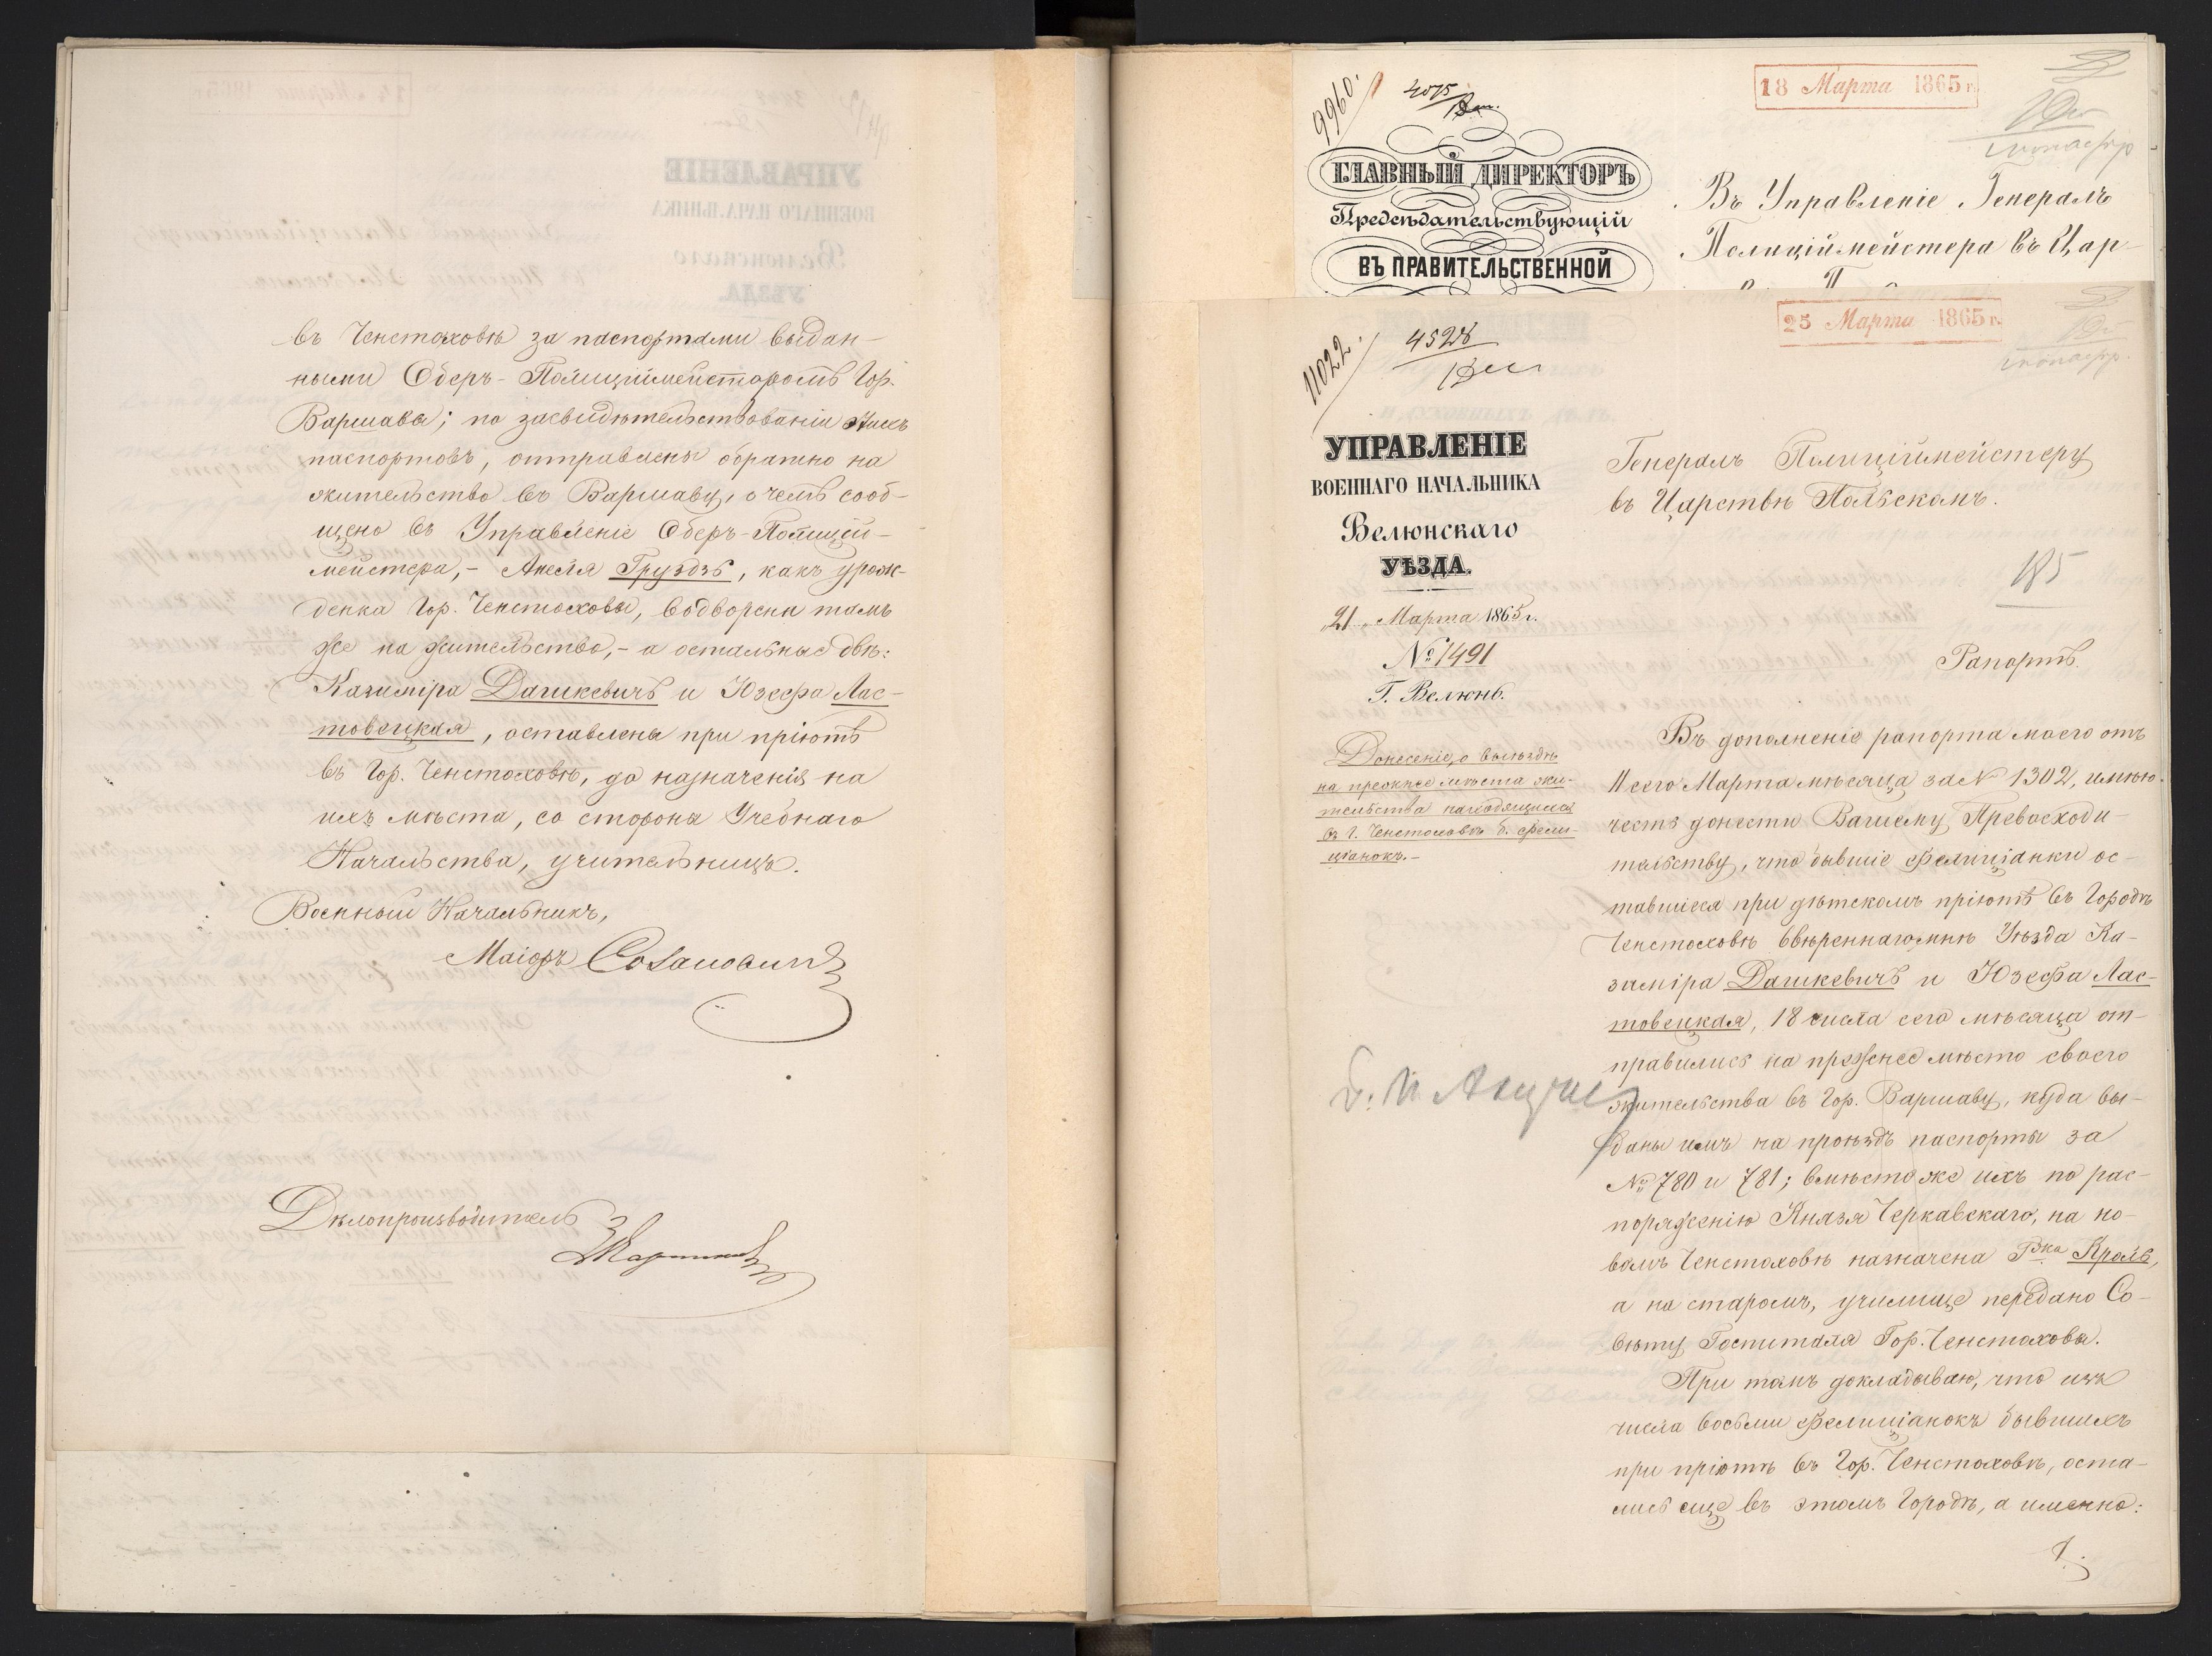 въ Ченстоховѣ за паспортами выдан-
ными Оберъ-Полиціймейстеромъ Гор.
Варшавы; по засвидѣтельствованіи этихъ
паспортовъ, отправлены обратно на
жительство въ Варшаву, о чемъ сооб-
щено въ Управленіе Оберъ-Полицій-
мейстера,- Анеля Груздзь, какъ урож-
денка Гор. Ченстоховы, водворена тамъ
же на жительство,- а остальныя двѣ:
Казиміра Дашкевичъ и Юзефа Лас-
товецкая, оставлены при пріютѣ
въ Гор. Ченстоховѣ, до назначенія на
ихъ мѣста, со стороны Учебнаго
Начальства, учительницъ.
Военный Начальникъ,
Маіоръ
Дѣлопроизводитель
9960.
4075
18 Марта 1865 г.
ГЛАВНЫЙ ДИРЕКТОРЪ
Предсѣдательствующій
ВЪ ПРАВИТЕЛЬСТВЕННОЙ
Въ Управленіе Генералъ
Полиціймейстера въ Цар-
25 Марта 1865 г.
11022.
4528
УПРАВЛЕНІЕ
ВОЕННАГО НАЧАЛЬНИКА
Велюнскаго
УѢЗДА.
21 Марта 1865 г.
№ 1491
Г. Велюнь.
Донесеніе, о выѣздѣ
на прежнее мѣста жи-
тельства находящихся
въ г. Ченстоховѣ б. фели-
ціанокъ.-
Генералъ Полиціймейстеру
въ Царствѣ Польскомъ.
185
Рапортъ.
Въ дополненіе рапорта моего отъ
11 сего Марта мѣсяца за № 1302, имѣю
честь донести Вашему Превосходи-
тельству, что бывшіе фелиціанки ос-
тавшіеся при дѣтскомъ пріютѣ въ Городѣ
Ченстоховѣ ввѣреннаго мнѣ Уѣзда Ка-
зиміра Дашкевичъ и Юзефа Лас-
товецкая, 18 числа сего мѣсяца от-
правились на прежнее мѣсто своего
жительства въ Гор. Варшаву, куда вы-
даны имъ на проѣздъ паспорты за
№ 780 и 781; вмѣсто же ихъ по рас-
поряженію Князя Черкавскаго, на но-
вомъ Ченстоховѣ назначена Г-жа Кроль,
а на старомъ, училище передано Со-
вѣту Госпиталя Гор. Ченстоховы.
При томъ докладываю, что изъ
числа восьми фелиціанокъ бывшихъ
при пріютѣ въ Гор. Ченстоховѣ, оста-
лись еще въ этомъ Городѣ, а именно: